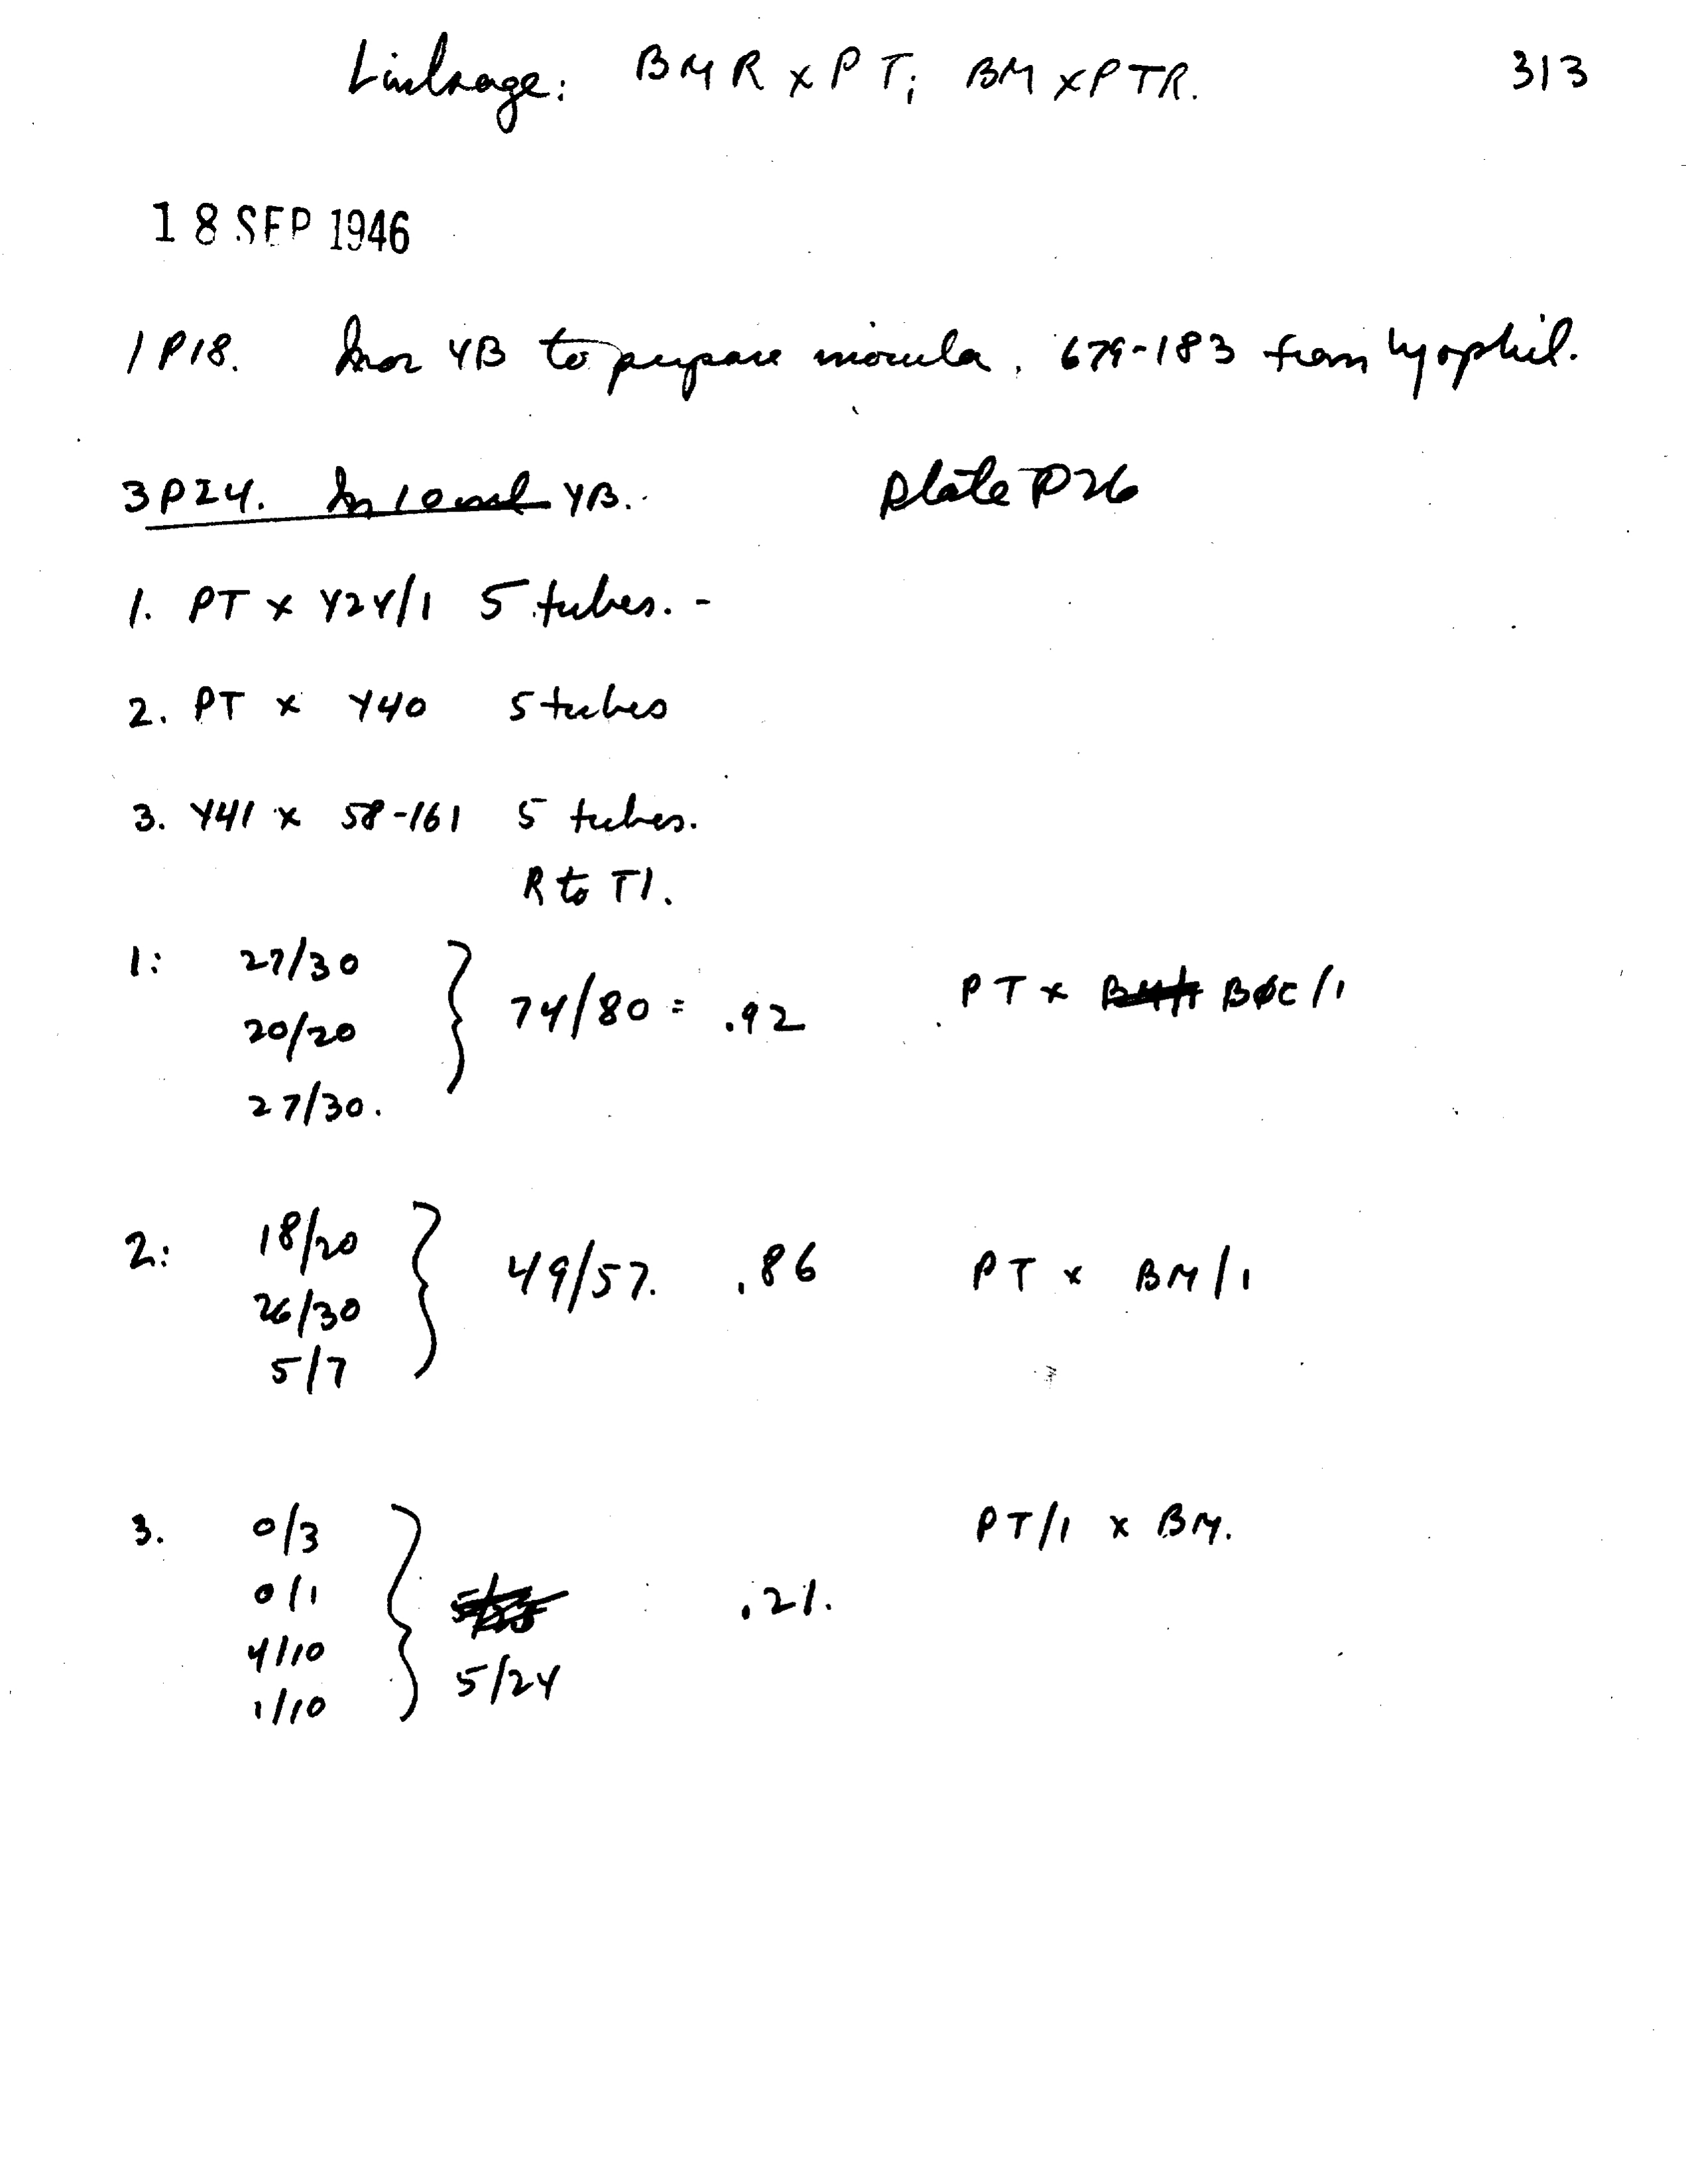 Linkage: BMR x PT; BM x PTR. 313
18 SEP 1946
1 P18. Inoc YB to prepare inocula. 679-183 from lyophil.
3P24. In 10 ml YB. Plate P26
1. PT x Y24/1 5 tubes. -
2. PT x Y40 5 tubes
3. Y41 x 58-161 5 tubes.
R to T1.
1: 27/30
20/20 74/80 = .92 PT x BφC/1
27/30.
2: 18/20
26/30 49/57. .86 PT x BM/1
5/7
3. 0/3 PT/1 x BM.
0/1 .21.
4/10
5/24
1/10